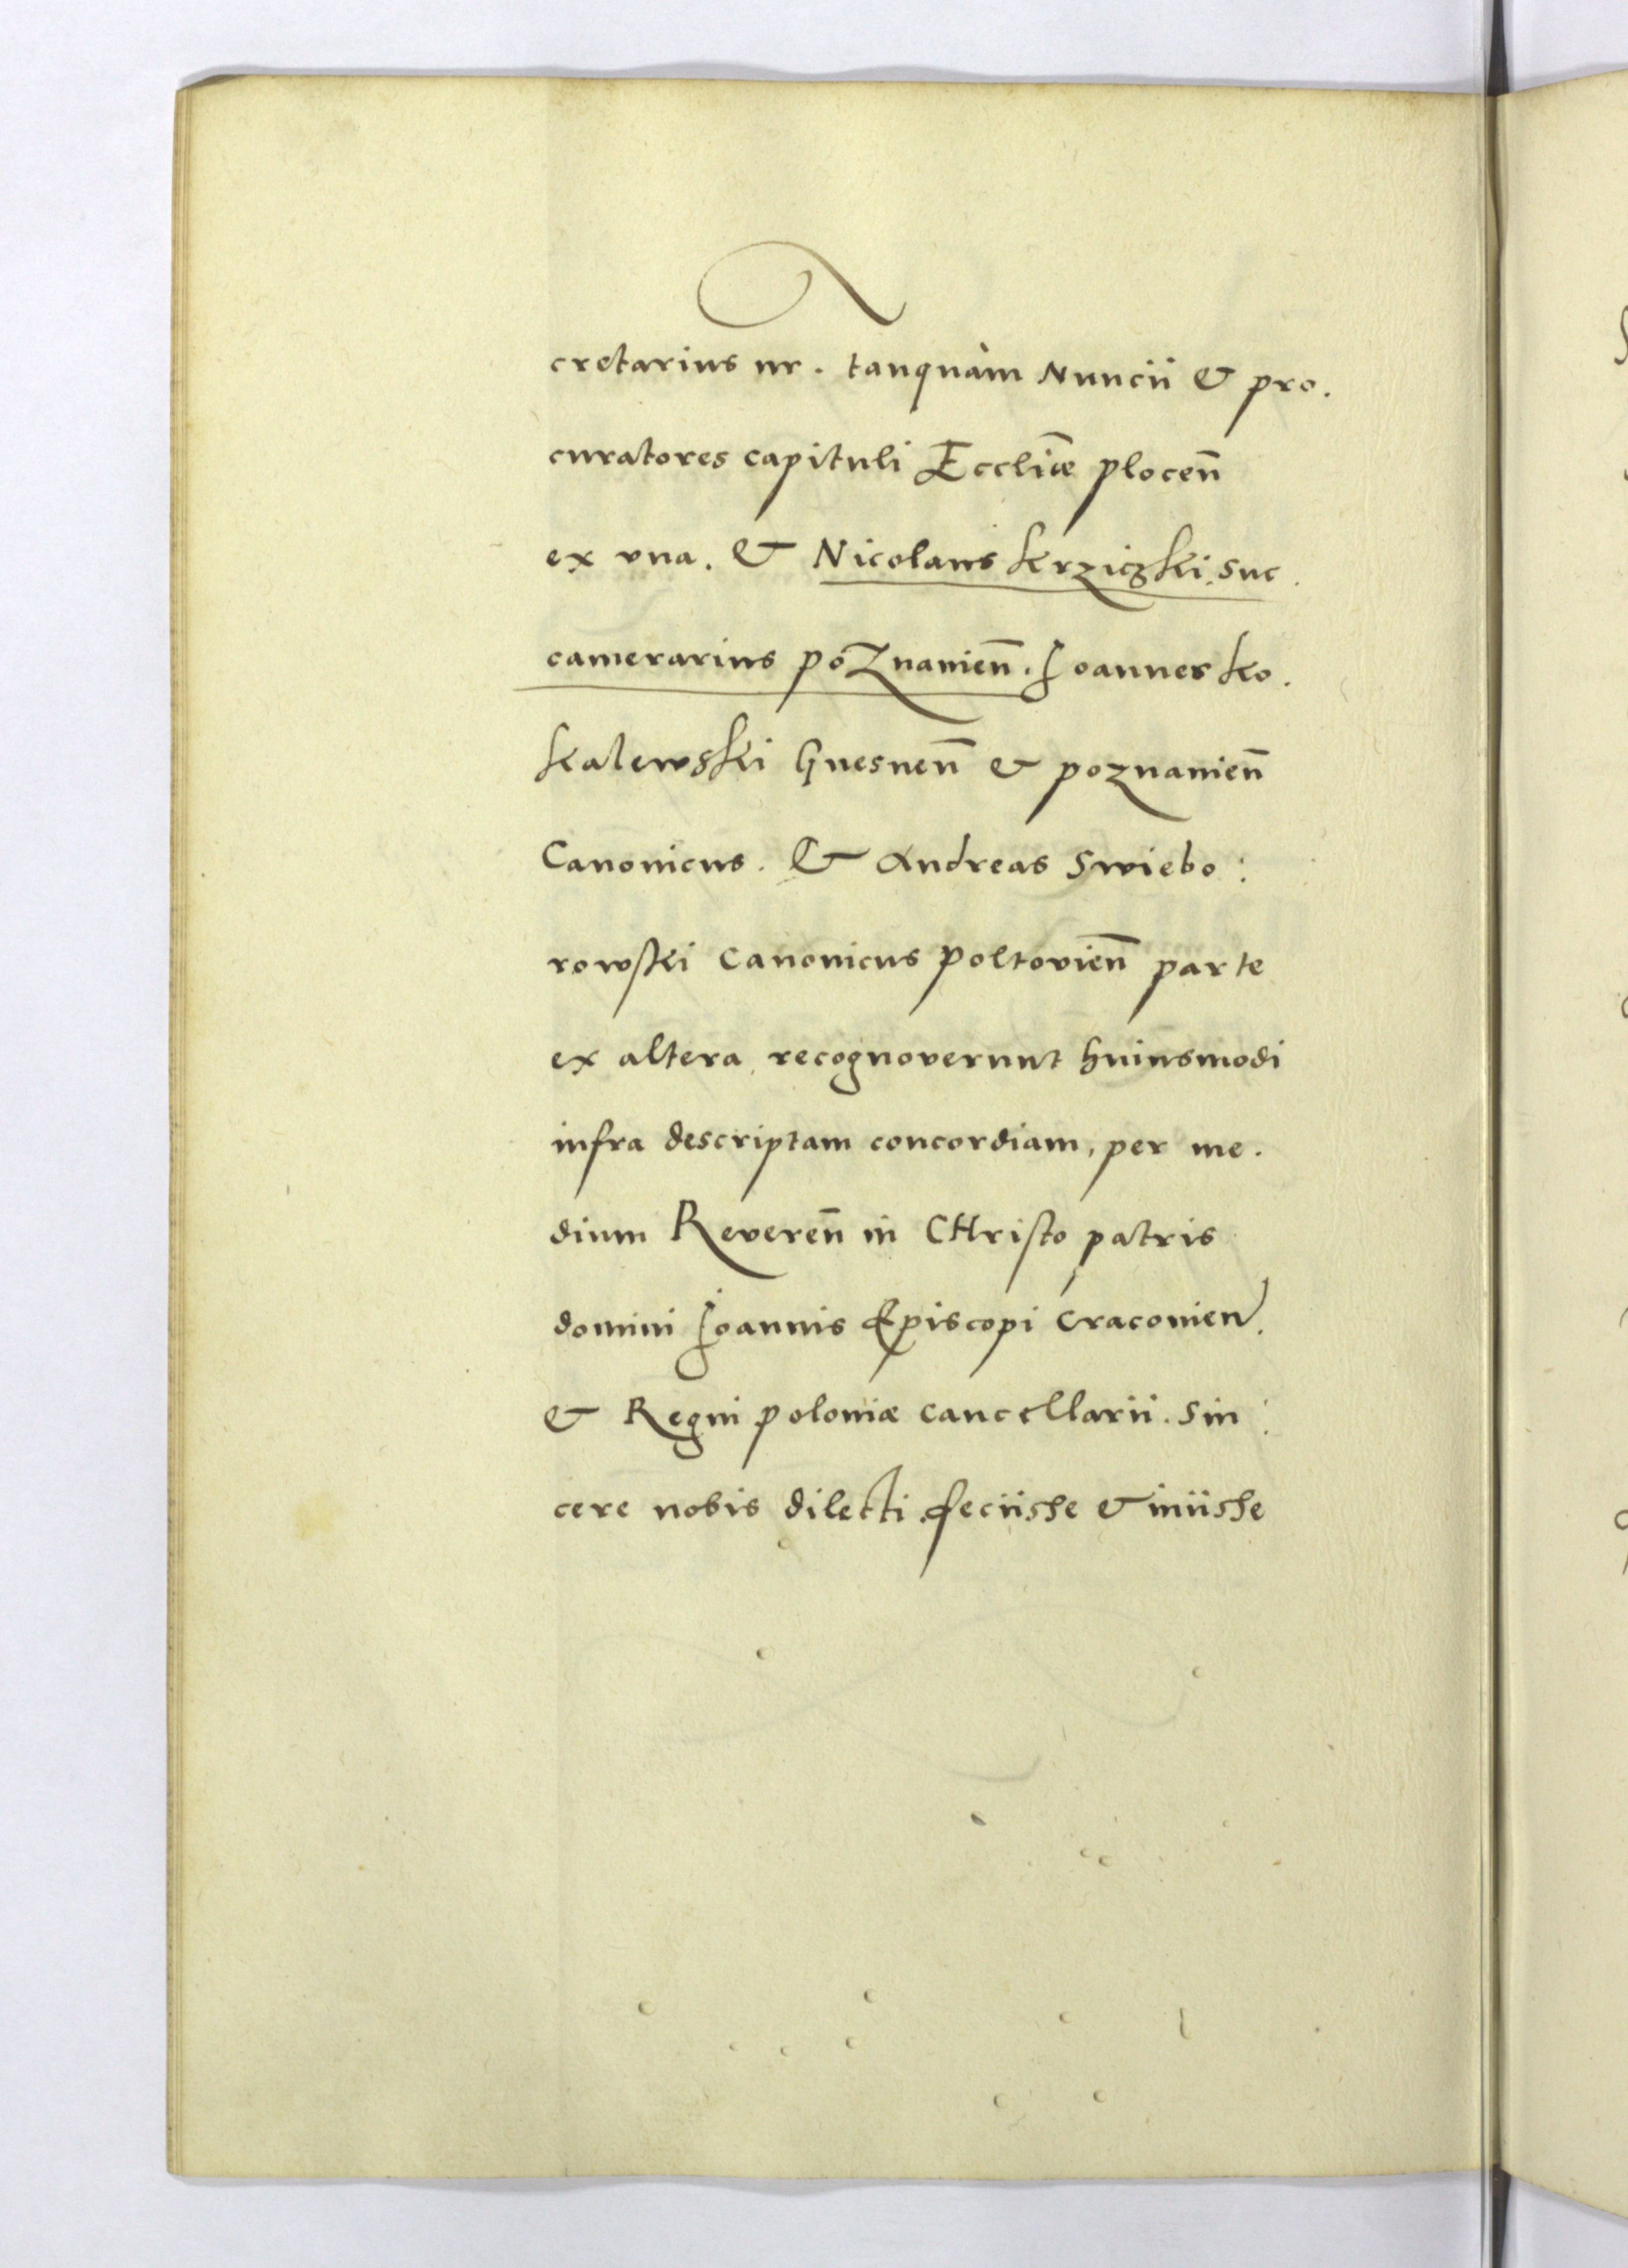 cretarius nr. tanquàm Nuncii & pro.
curatores capituli Eccli͞æ plocen̄
ex vna. & Nicolaus Krziczki, suc.
camerarius poznanien̄. Joannes Ko.
kalewski Gnesnen̄ & poznanien̄
Canonicus. & Andreas Swiebo:
rowski Canonicus poltovien̄ parte
ex altera, recognoverunt huiusmodi
infra descriptam concordiam, per me.
dium Reveren̄ in CHristo patris
domini Joannis Episcopi Craconien.
& Regni poloniæ cancellarii. Sin:
cere nobis dilecti. feciisse & iniisse